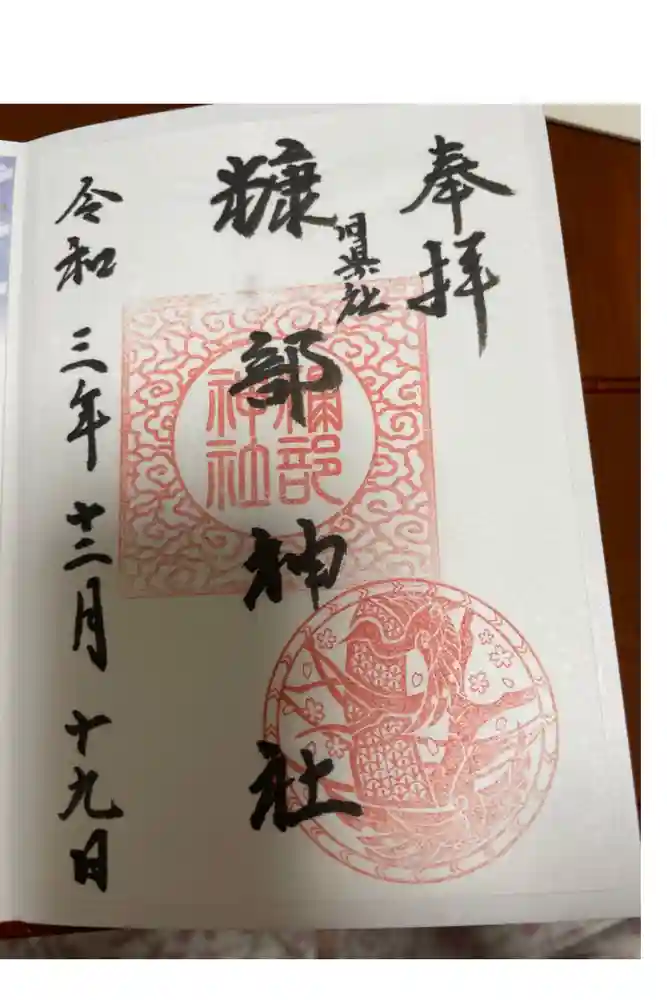 奉拝
旧県社
糠部神社
糠部神社
令和三年十二月十九日